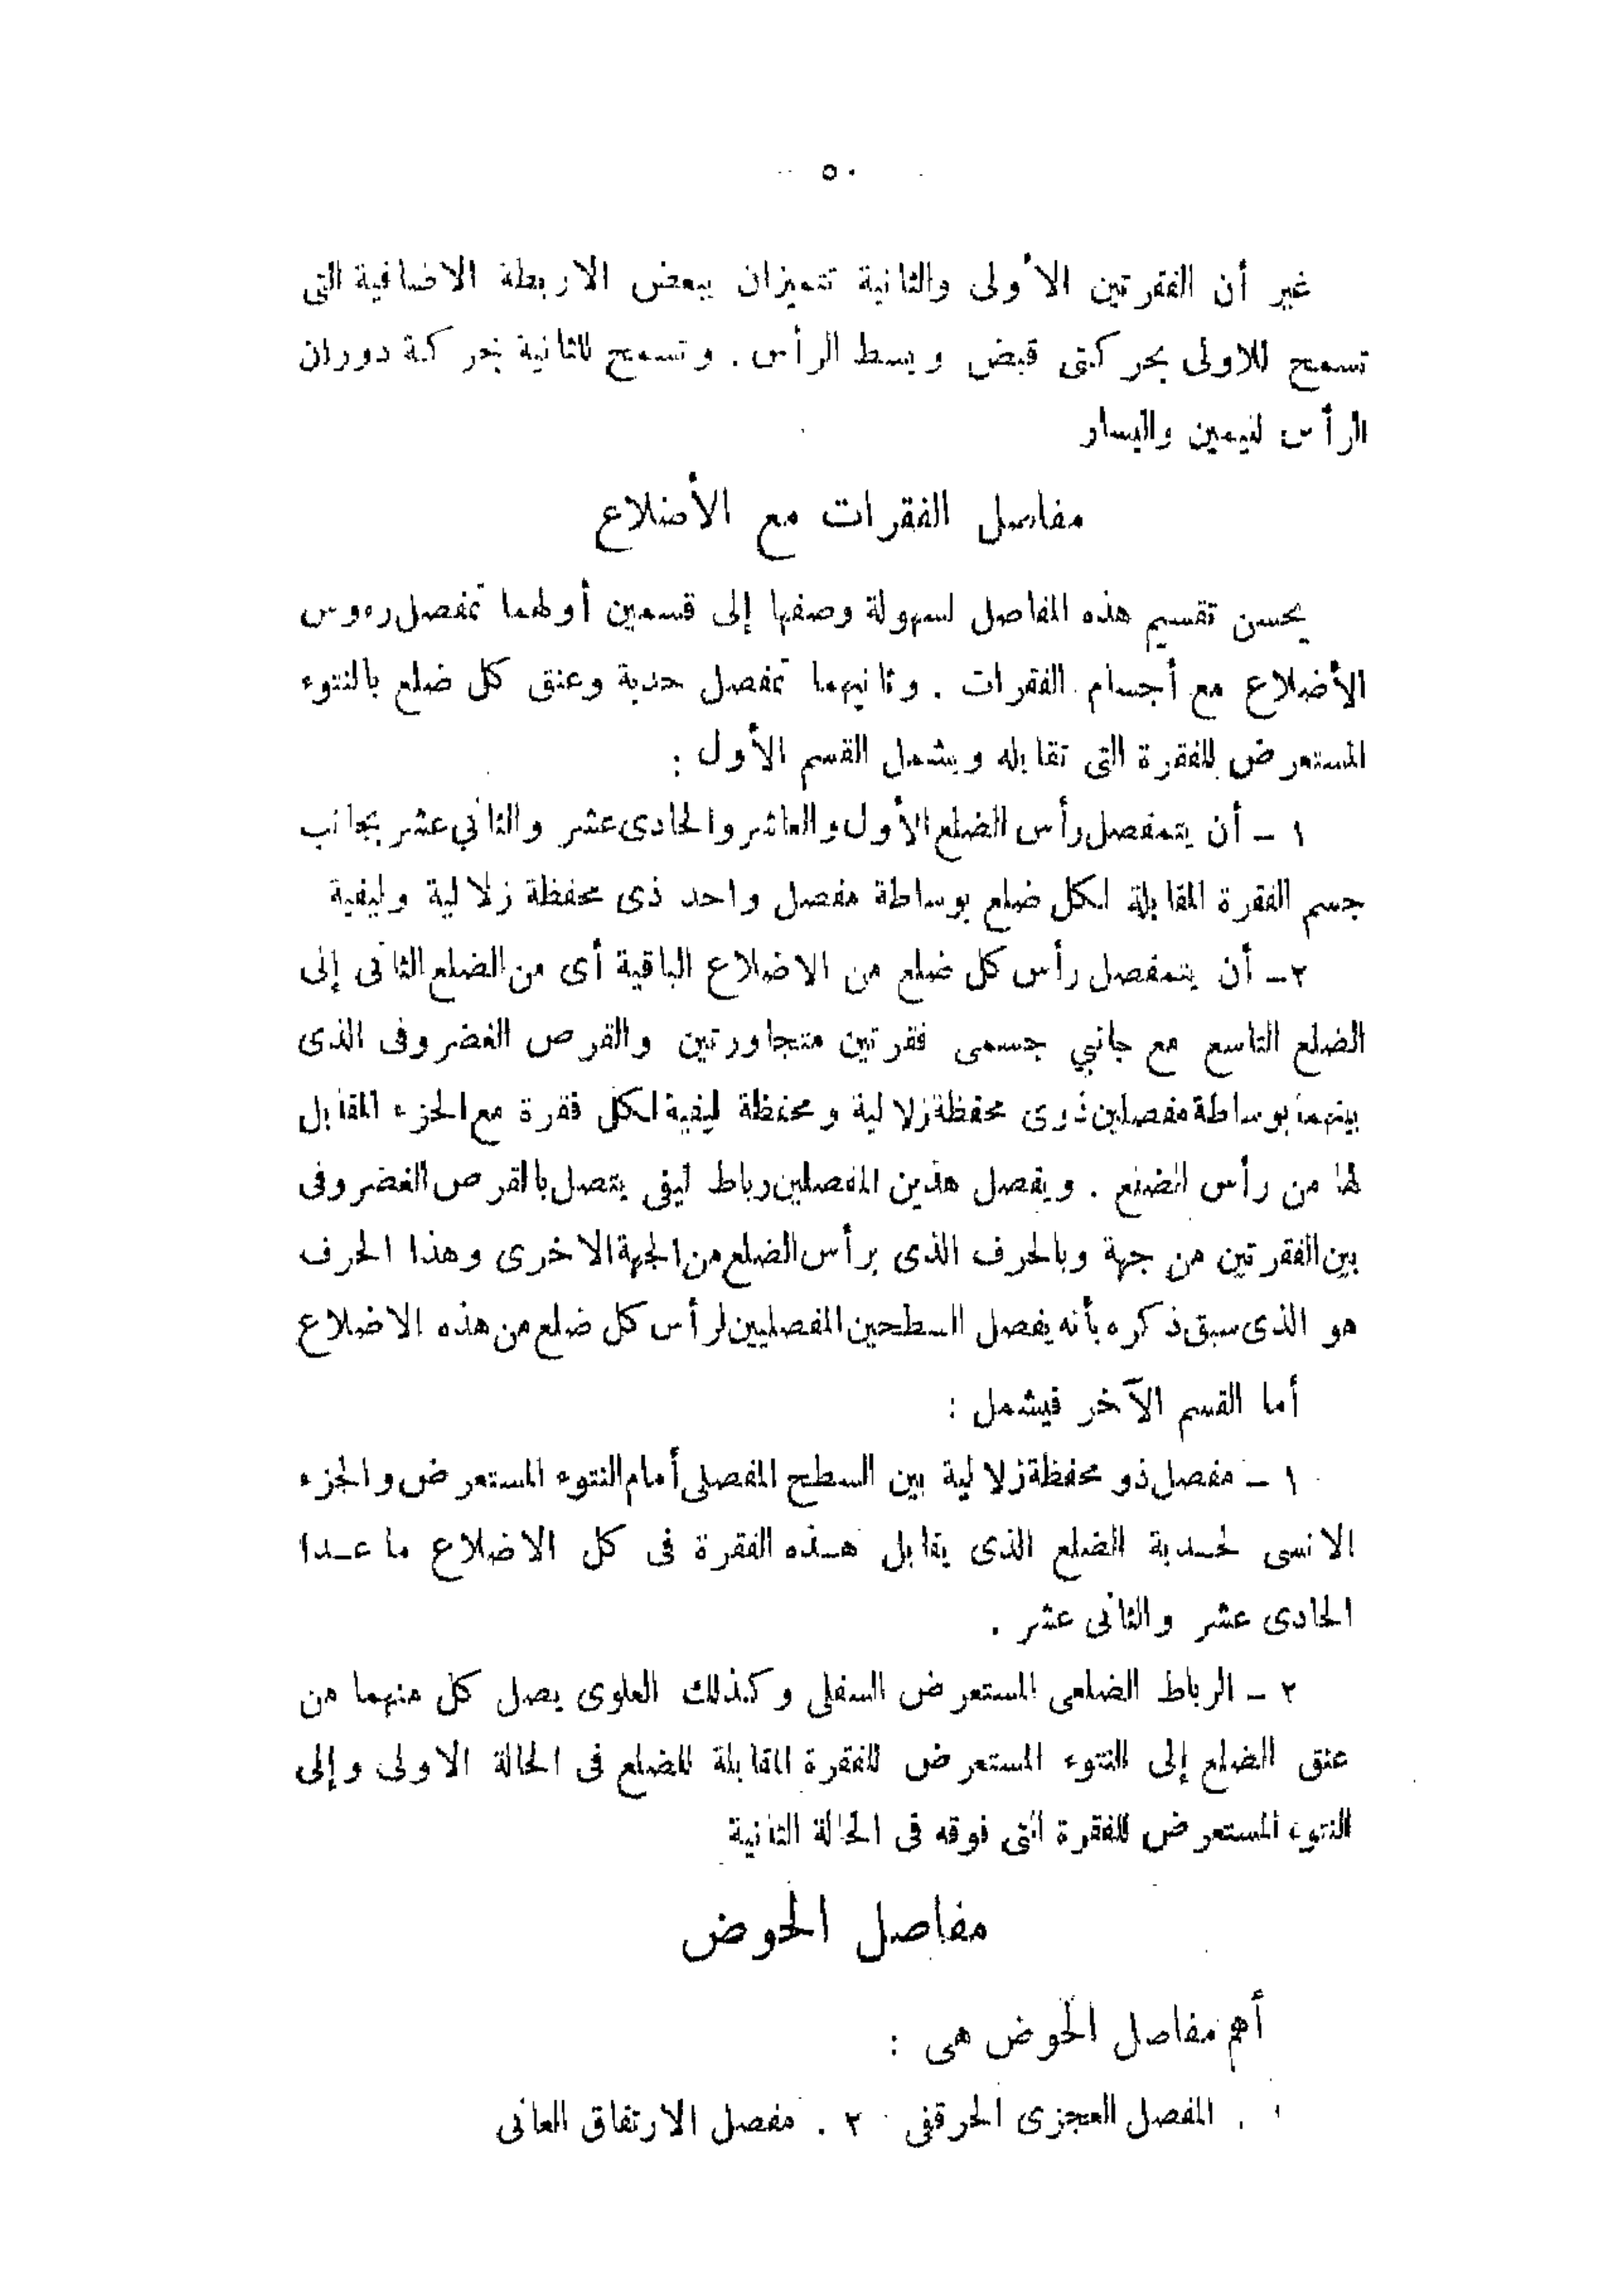 ٥٠
غير أن الفقرتين الأولى والثانية تتميزان ببعض الاربطة الاضافية التى
تسمح للاولى بحركتى قبض وبسط الرأس . وتسمح للثانية بحركة دوران
الرأس لليمين واليسار
مفاصل الفقرات مع الأضلاع
يحسن تقسيم هذه المفاصل لسهولة وصفها إلى قسمين أولهما تمفصل رءوس
الأضلاع مع أجسام الفقرات . وثانيهما تمفصل حدبة وعنق كل ضلع بالنتوء
المستعرض للفقرة التى تقابله ويشمل القسم الأول :
١ - أن يتمفصل رأس الضلع الأول والعاشر والحادى عشر والثاني عشر بجانب
جسم الفقرة المقابلة لكل ضلع بوساطة مفصل واحد ذى محفظة زلالية وليفية
٢ - أن يتمفصل رأس كل ضلع من الاضلاع الباقية أى من الضلع الثانى إلى
الضلع التاسع مع جانبي جسمى فقرتين متجاورتين والقرص الغضروفى الذى
بينهما بوساطة مفصلين ذوى محفظة زلالية ومحفظة ليفية لكل فقرة مع الجزء المقابل
لها من رأس الضلع . ويفصل هذين المفصلين رباط ليفى يتصل بالقرص الغضروفى
بين الفقرتين من جهة وبالحرف الذى برأس الضلع من الجهة الاخرى وهذا الحرف
هو الذى سبق ذكره بأنه يفصل السطحين المفصليين لرأس كل ضلع من هذه الاضلاع
أما القسم الآخر فيشمل :
١ - مفصل ذو محفظة زلالية بين السطح المفصلى أمام النتوء المستعرض والجزء
الانسى لحـدبة الضلع الذى يقابل هـذه الفقرة فى كل الاضلاع ما عـدا
الحادى عشر والثانى عشر .
٢ - الرباط الضلعى المستعرض السفلى وكذلك العلوى يصل كل منهما من
عنق الضلع إلى النتوء المستعرض للفقرة المقابلة للضلع فى الحالة الاولى وإلى
النتوء المستعرض للفقرة التى فوقه فى الحالة الثانية
مفاصل الحوض
أهم مفاصل الحوض هى :
١ . المفصل العجزى الحرقفى ٢ . مفصل الارتفاق العانى